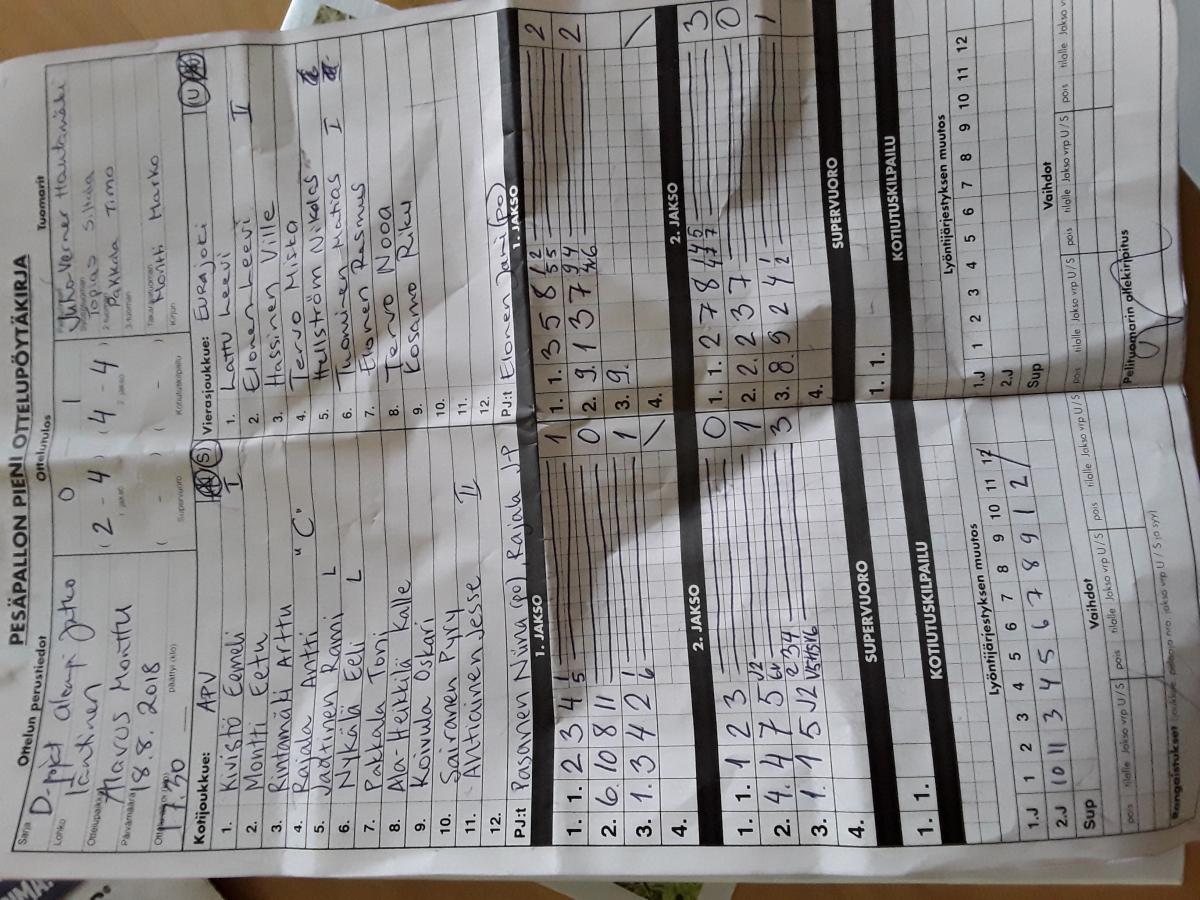 PESÄPALLON PIENI OTTELUPÖYTÄKIRJA
Ottelun perustiedot
Ottelutulos
Tuomarit
Sarja
D-pojat alempi jatko
Lohko
Läntinen
Ottelupaikka
Alavus Monttu
Päivämäärä
18.8. 2018
17.30
päättyi (klo)
0 1
( 2 - 4 ) ( 4 - 4 )
1. jakso 2. jakso
( - ) ( - )
Supervuoro Kotiutuskilpailu
Juho Verner Hautamäki
Topias Siltala
Pakkala Timo
2-tuomari
3-tuomari
Takarajatuomari
Montti Marko
Kirjuri
Kotijoukkue: APV S
1. Kivistö Eemeli I
2. Montti Eetu
3. Rintamäki Arttu
4. Rajala Antti "C"
5. Jaatinen Rami L
6. Nykälä Eeli L
7. Pakkala Toni
8. Ala-Heikkilä Kalle
9. Koivula Oskari
10. Sairanen Pyry
11. Anttiainen Jesse II
12.
PJ:t Pasanen Niina (po), Rajala J-P
Vierasjoukkue: EURAJOKI U
1. Lattu Leevi II
2. Elonen Leevi
3. Hassinen Ville
4. Tervo Miska
5. Hellström Nikolas
6. Tuominen Matias I
7. Elonen Rasmus
8. Tervo Noa
9. Kosamo Riku
10.
11.
12.
PJ:t Elonen Jani (PO)
1. JAKSO
1. 1. 2 3 4 1 5 1
2. 6. 10 8 11 0
3. 1. 3 4 2 1 6 1
4. \
1. JAKSO
1. 1. 3 5 8 2
2. 9. 1 3 7 2
3. 9. \
4.
2. JAKSO
1. 1. 1 2 3 0
2. 4. 4 7 5 1
3. 1. 1 5 3
4.
2. JAKSO
1. 1. 2 7 8 3
2. 2. 2 3 7 0
3. 8. 9 2 4 1
4.
SUPERVUORO
1. 1.
SUPERVUORO
1. 1.
KOTIUTUSKILPAILU
KOTIUTUSKILPAILU
Lyöntijärjestyksen muutos
1.J 1 2 3 4 5 6 7 8 9 10 11 12
2.J 10 11 3 4 5 6 7 8 9 1 2 /
Sup
Lyöntijärjestyksen muutos
1.J 1 2 3 4 5 6 7 8 9 10 11 12
2.J
Sup
Vaihdot
pois tilalle Jakso vrp U/S pois tilalle Jakso vrp U/S
Vaihdot
pois tilalle Jakso vrp U/S pois tilalle Jakso vrp U/S
Pelituomarin allekirjoitus